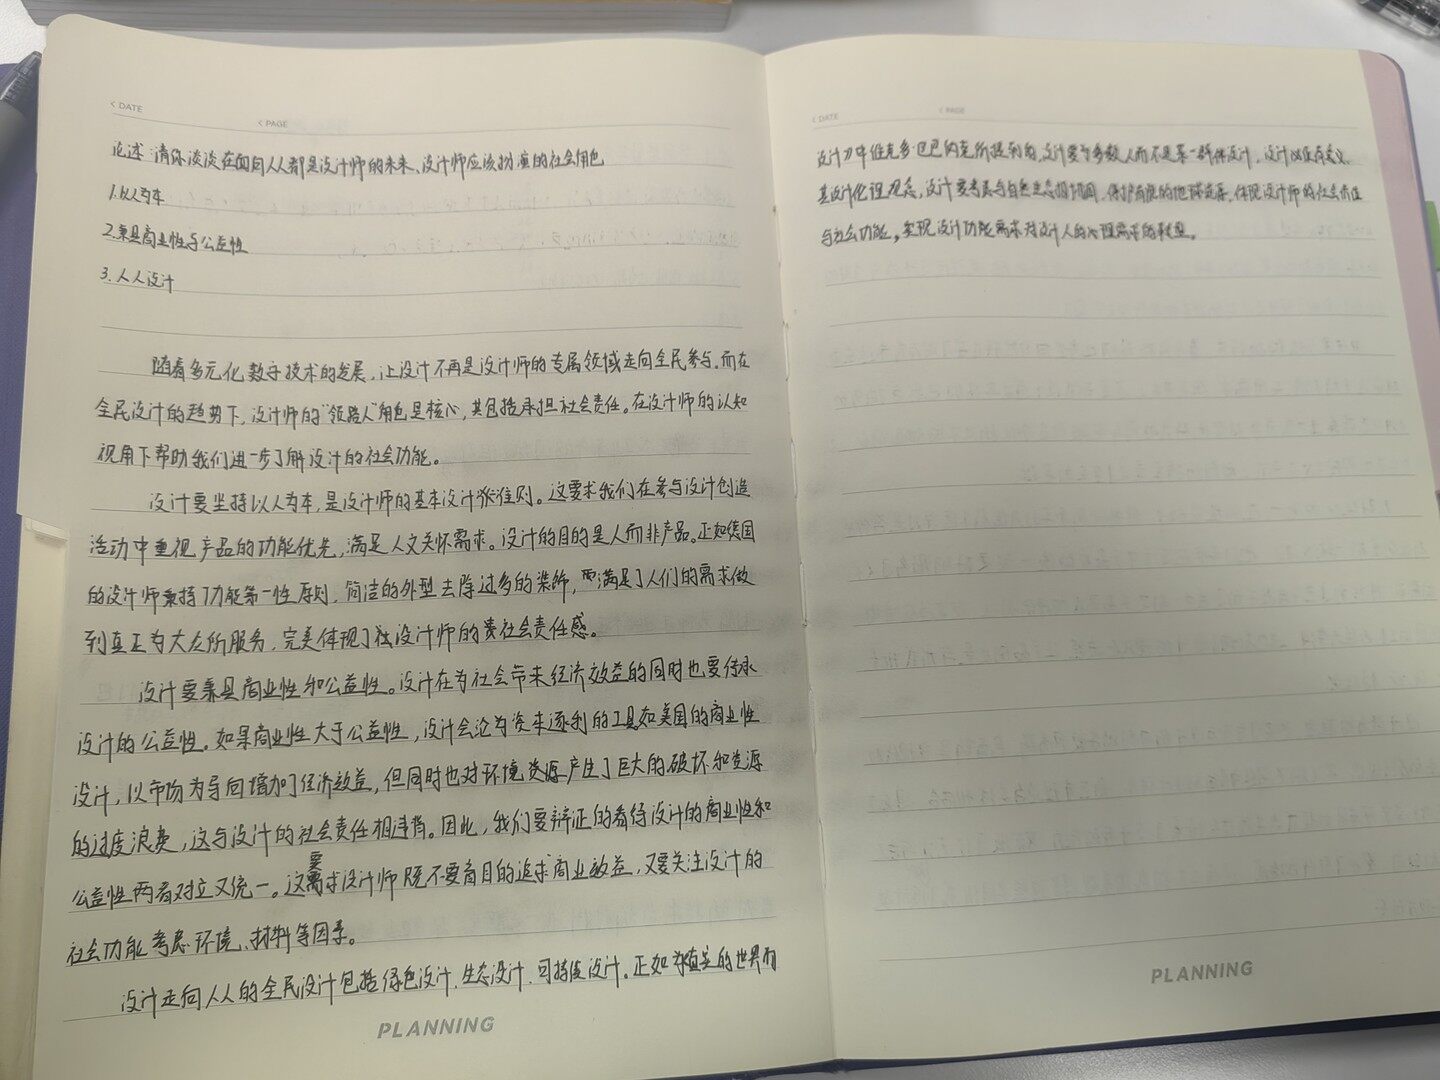 < DATE
< PAGE
论述:请你谈谈在面向人人都是设计师的未来、设计师应该扮演的社会角色
1.以人为本
2.兼具商业性与公益性
3.人人设计
随着多元化数字技术的发展,让设计不再是设计师的专属领域走向全民参与。而在
全民设计的趋势下,设计师的"领路人"角色是核心,其包括承担社会责任。在设计师的认知
视角下帮助我们进一步了解设计的社会功能。
设计要坚持以人为本,是设计师的基本设计准则。这要求我们在参与设计创造
活动中重视产品的功能优先,满足人文关怀需求。设计的目的是人而非产品。正如德国
的设计师秉持功能第一性原则,简洁的外型去除过多的装饰,满足了人们的需求做
到真正为大众所服务,完美体现了设计师的社会责任感。
设计要兼具商业性和公益性。设计在为社会带来经济效益的同时也要传承
设计的公益性。如果商业性大于公益性,设计会沦为资本逐利的工具如美国的商业性
设计,以市场为导向增加了经济效益,但同时也对环境资源产生了巨大的破坏和资源
的过度浪费,这与设计的社会责任相违背。因此,我们要辩证的看待设计的商业性和
公益性两者对立又统一。这要求设计师既不要盲目的追求商业效益,又要关注设计的
社会功能考虑环境、材料等因素。
设计走向人人的全民设计包括绿色设计、生态设计、可持续设计。正如为真实的世界而
PLANNING
< DATE
< PAGE
设计力中维克多·巴巴纳克所提到的,设计要为多数人而不是某一群体设计,设计
其设计伦理观念,设计要考虑与自然生态相协调,保护有限的地球资源,体现设计师的社会价值
与社会功能。实现设计功能需求对设计人的心理需求的
PLANNING